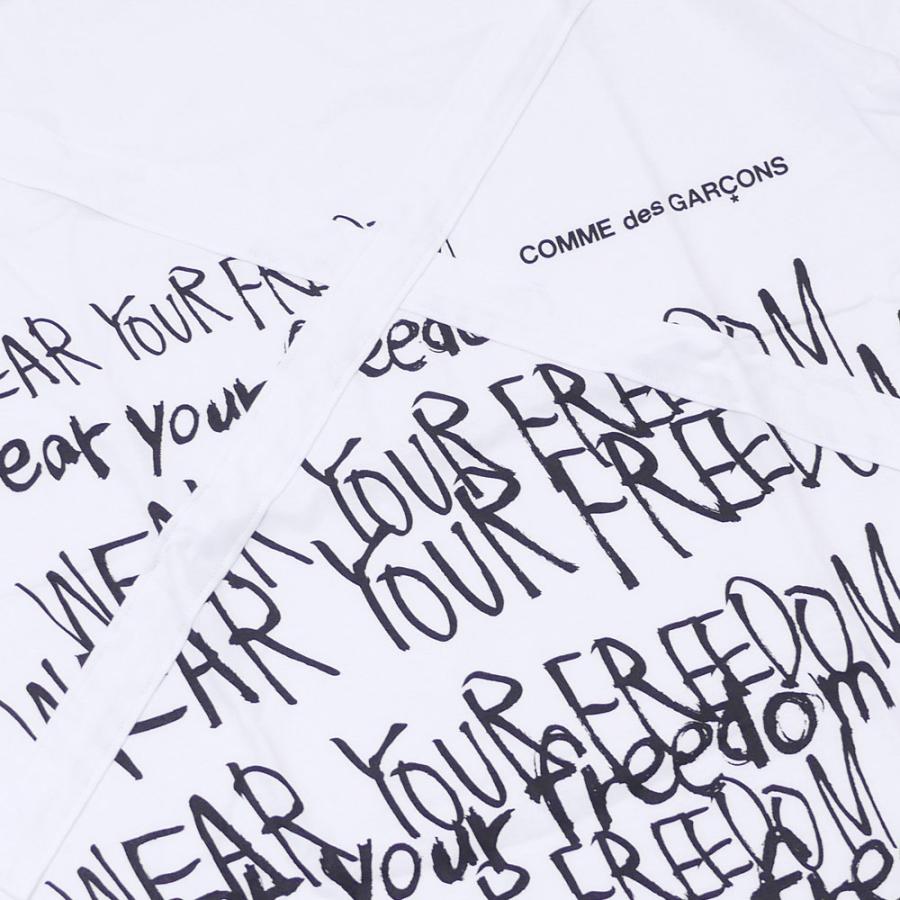 COMME des GARÇONS
WEAR YOUR FREEDOM
wear your freedom
WEAR YOUR FREEDOM
WEAR YOUR FREEDOM
WEAR YOUR FREEDOM
your freedom
FREEDOM